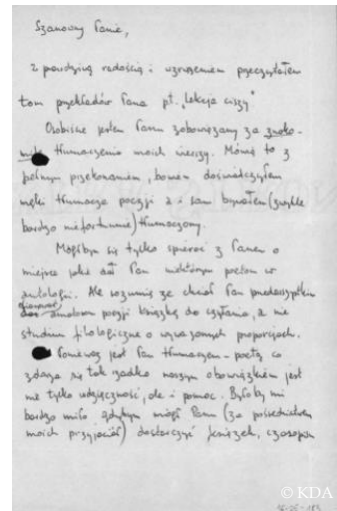 Szanowny Panie,
z prawdziwą radością i wzruszeniem przeczytałem
tom przekładów Pana pt. "Lekcja ciszy"
Osobiście jestem Panu zobowiązany za znako-
mite tłumaczenia moich wierszy. Mówię to z
pełnym przekonaniem, bowiem doświadczyłem
męki tłumacza poezji a i sam bywałem (zwykle
bardzo niefortunnie) tłumaczony.
Mógłbym się tylko spierać z Panem o
miejsce jakie dał Pan niektórym poetom w
antologii. Ale rozumiem że chciał Pan przede wszystkim
amatorom poezji książkę do czytania, a nie
studium filologiczne o wyważonych proporcjach.
Ponieważ jest Pan tłumaczem-poetą co
zdarza się tak rzadko naszym obowiązkiem jest
nie tylko wdzięczność, ale i pomoc. Byłoby mi
bardzo miło gdybym mógł Panu (za pośrednictwem
moich przyjaciół) dostarczyć książek, czasopism
© KDA